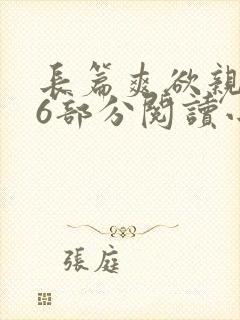 長篇爽欲親
6部分閱讀
張庭